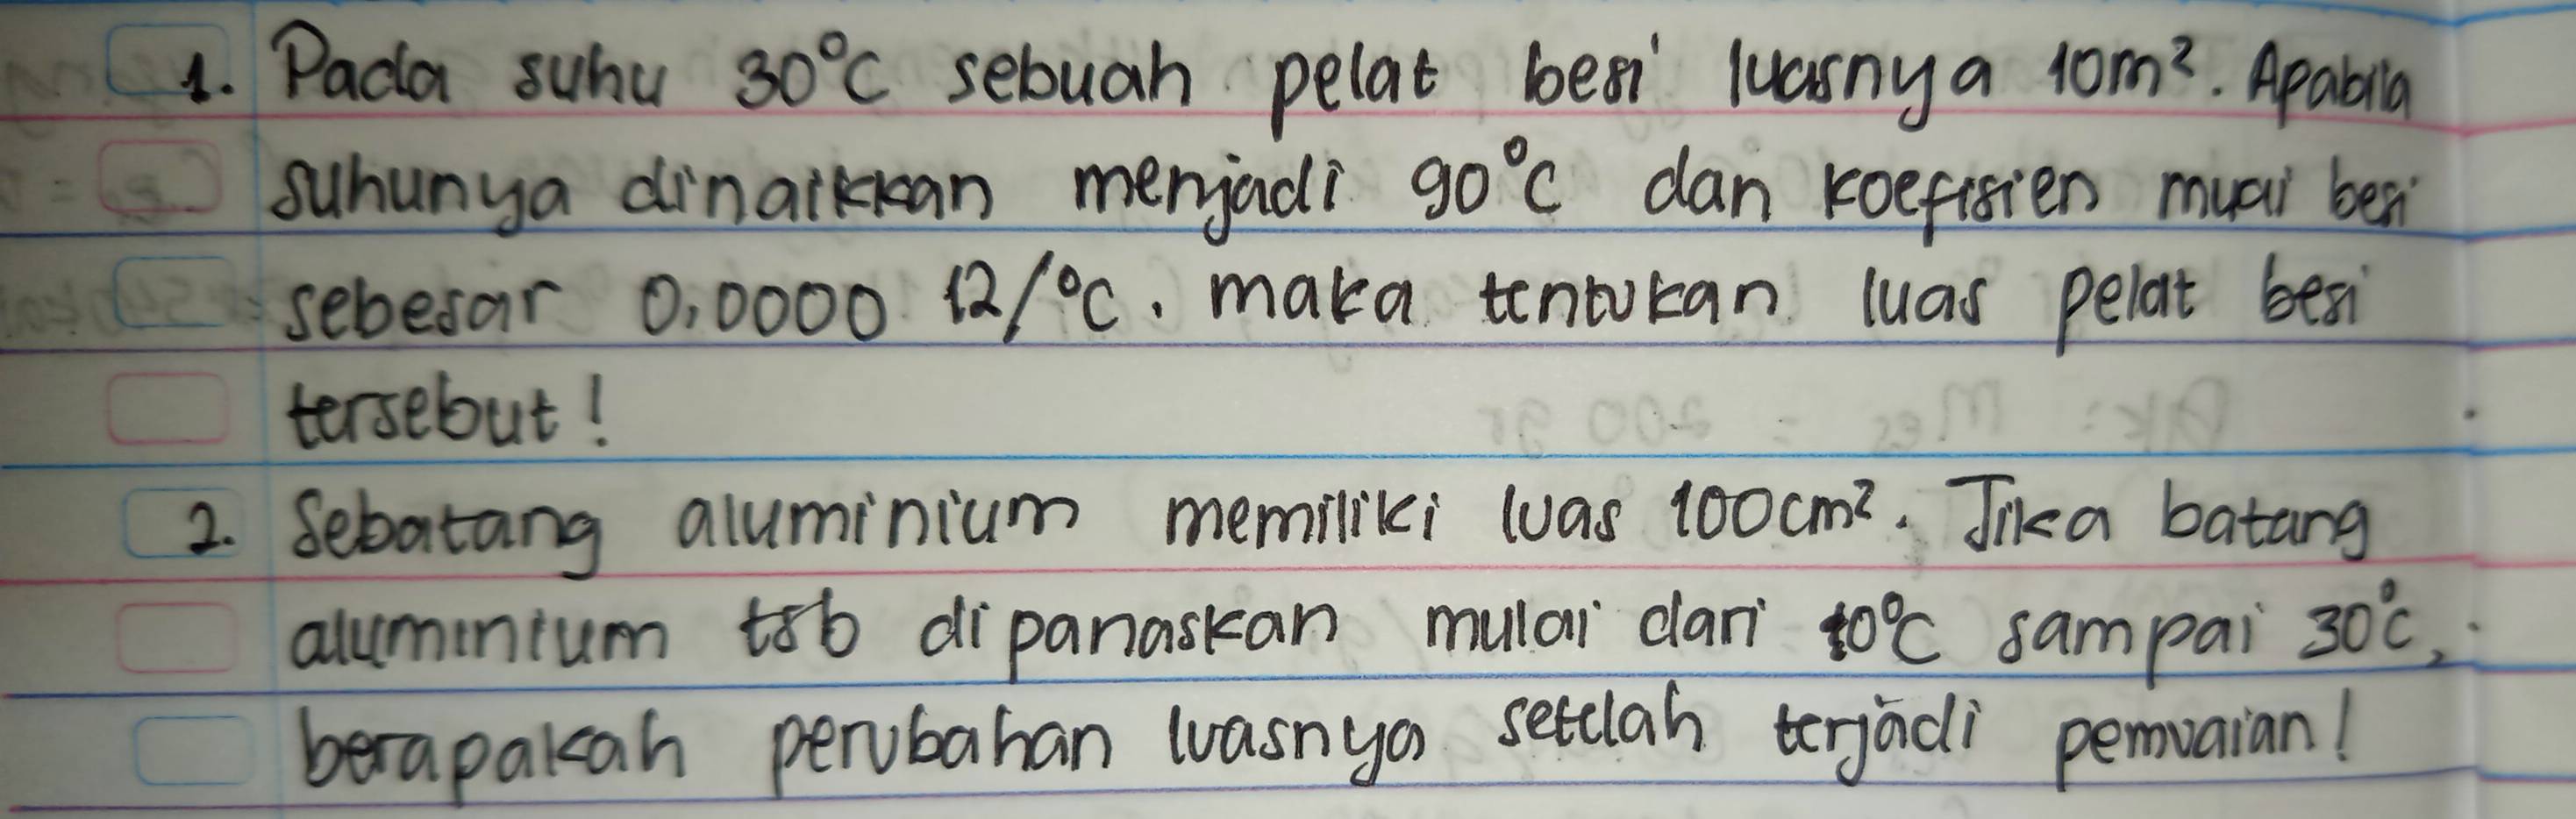 1. Pada suhu 30°C sebuah pelat besi luasnya 10m². Apabila
suhunya dinaikkan menjadi 90°C dan koefisien muai besi
sebesar 0,0000 12/°C. maka tentukan luas pelat besi
tersebut!
2. Sebatang aluminium memiliki luas 100cm². Jika batang
aluminium tsb dipanaskan mulai dari 10°C sampai 30°C,
berapakah perubahan luasnya setelah terjadi pemuaian!